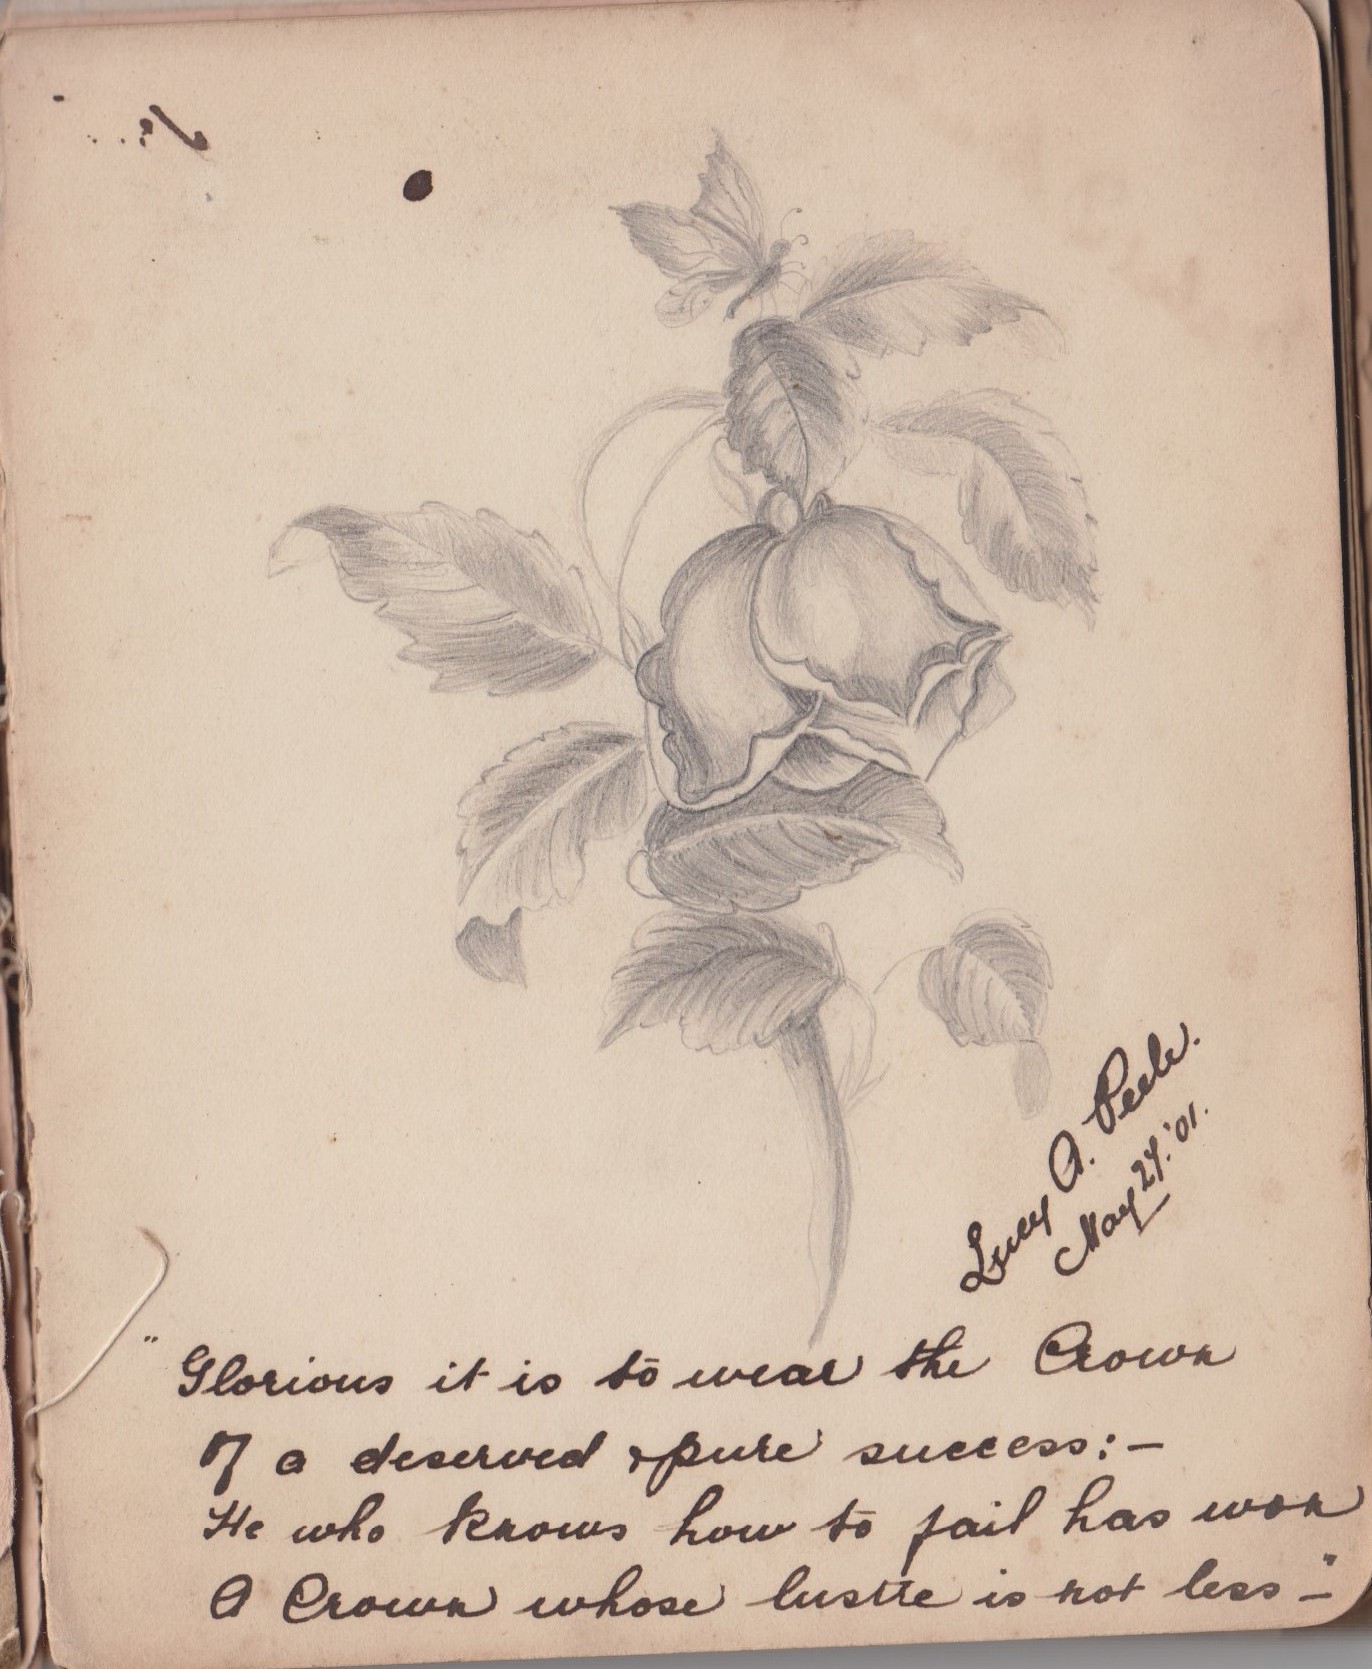 Lucy A. Peele.
May 27. '01.
"Glorious it is to wear the Crown
Of a deserved & pure success:—
He who knows how to fail has won
A Crown whose lustre is not less—"